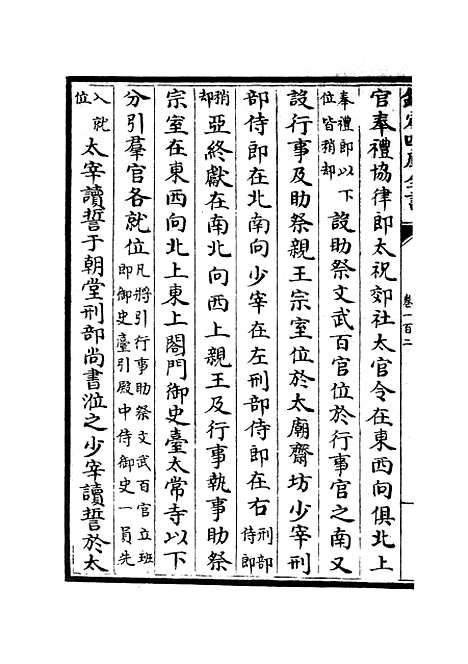 欽定四庫全書
卷一百二
官奉禮協律郎太祝郊社太官令在東西向俱北上
奉禮郎以下
位皆稍却
設助祭文武百官位於行事官之南又
設行事及助祭親王宗室位於太廟齋坊少宰刑
部侍郎在北南向少宰在左刑部侍郎在右
刑部
侍郎
稍
却
亞終獻在南北向西上親王及行事執事助祭
宗室在東西向北上東上閤門御史臺太常寺以下
分引羣官各就位
凡將引行事助祭文武百官立班
即御史臺引殿中侍御史一員先
入就
位
太宰讀誓于朝堂刑部尚書涖之少宰讀誓於太